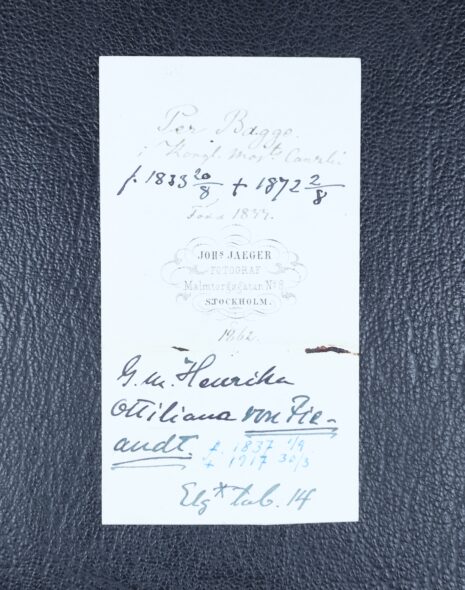 Per Bagge.
i Kongl. Maj:ts Canzli
f. 1833 20/8 + 1872 2/8
Född 1833.
JOHS. JAEGER
FOTOGRAF
Malmtorgsgatan No 8
STOCKHOLM.
1862.
G. m. Henrika
Ottiliana von Pie-
andt.
f. 1837 1/9
+ 1917 30/3
Elg* tab. 14